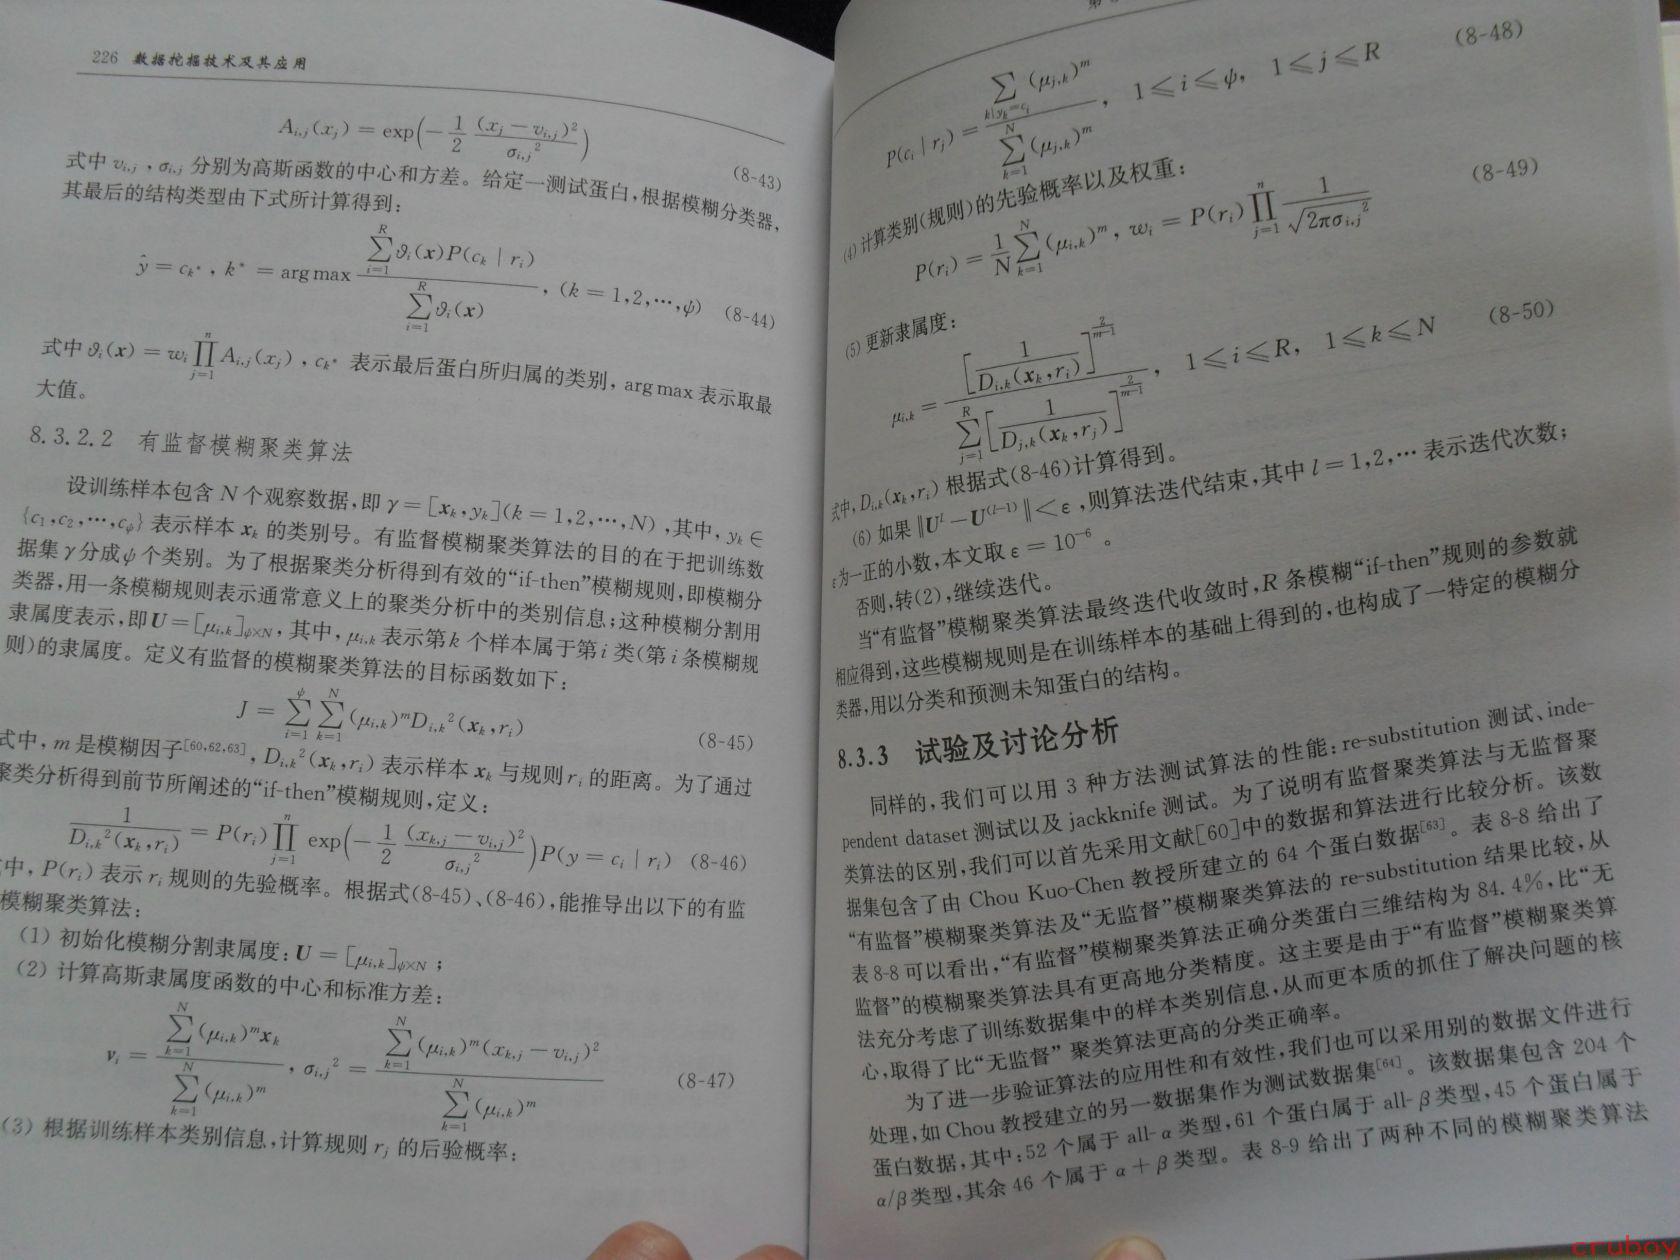 226 数据挖掘技术及其应用
A_{i,j}(x_j) = exp(-\frac{1}{2} \frac{(x_j - v_{i,j})^2}{σ_{i,j}^2})
(8-43)
式中 v_{i,j}, σ_{i,j} 分别为高斯函数的中心和方差。给定一测试蛋白,根据模糊分类器,
其最后的结构类型由下式所计算得到:
\hat{y} = c_{k*}, k* = arg max \frac{\sum_{i=1}^{R} ϑ_i(x)P(c_k | r_i)}{\sum_{i=1}^{R} ϑ_i(x)}, (k = 1,2,…,ψ) (8-44)
式中 ϑ_i(x) = w_i \prod_{j=1}^{n} A_{i,j}(x_j), c_{k*} 表示最后蛋白所归属的类别, arg max 表示取最
大值。
8.3.2.2 有监督模糊聚类算法
设训练样本包含 N 个观察数据,即 γ = [x_k, y_k](k = 1,2,…,N),其中, y_k ∈
{c_1,c_2,…,c_ψ} 表示样本 x_k 的类别号。有监督模糊聚类算法的目的在于把训练数
据集 γ 分成 ψ 个类别。为了根据聚类分析得到有效的“if-then”模糊规则,即模糊分
类器,用一条模糊规则表示通常意义上的聚类分析中的类别信息;这种模糊分割用
隶属度表示,即 U = [μ_{i,k}]_{ψ×N}, 其中, μ_{i,k} 表示第 k 个样本属于第 i 类(第 i 条模糊规
则)的隶属度。定义有监督的模糊聚类算法的目标函数如下:
J = \sum_{i=1}^{ψ} \sum_{k=1}^{N} (μ_{i,k})^m D_{i,k}^2(x_k, r_i) (8-45)
式中, m 是模糊因子[60,62,63], D_{i,k}^2(x_k, r_i) 表示样本 x_k 与规则 r_i 的距离。为了通过
聚类分析得到前节所阐述的“if-then”模糊规则,定义:
\frac{1}{D_{i,k}^2(x_k, r_i)} = P(r_i) \prod_{j=1}^{n} exp(-\frac{1}{2} \frac{(x_{k,j} - v_{i,j})^2}{σ_{i,j}^2}) P(y = c_i | r_i) (8-46)
中, P(r_i) 表示 r_i 规则的先验概率。根据式(8-45)、(8-46),能推导出以下的有监
模糊聚类算法:
(1) 初始化模糊分割隶属度: U = [μ_{i,k}]_{ψ×N};
(2) 计算高斯隶属度函数的中心和标准方差:
v_i = \frac{\sum_{k=1}^{N} (μ_{i,k})^m x_k}{\sum_{k=1}^{N} (μ_{i,k})^m}, σ_{i,j}^2 = \frac{\sum_{k=1}^{N} (μ_{i,k})^m (x_{k,j} - v_{i,j})^2}{\sum_{k=1}^{N} (μ_{i,k})^m} (8-47)
(3) 根据训练样本类别信息,计算规则 r_j 的后验概率:
P(c_i | r_j) = \frac{\sum_{k|y_k=c_i} (μ_{j,k})^m}{\sum_{k=1}^{N} (μ_{j,k})^m}, 1 ≤ i ≤ ψ, 1 ≤ j ≤ R (8-48)
(4) 计算类别(规则)的先验概率以及权重:
P(r_i) = \frac{1}{N} \sum_{k=1}^{N} (μ_{i,k})^m, w_i = P(r_i) \prod_{j=1}^{n} \frac{1}{\sqrt{2πσ_{i,j}^2}} (8-49)
(5) 更新隶属度:
μ_{i,k} = \frac{[\frac{1}{D_{i,k}(x_k, r_i)}]^{\frac{2}{m-1}}}{\sum_{j=1}^{R} [\frac{1}{D_{j,k}(x_k, r_j)}]^{\frac{2}{m-1}}}, 1 ≤ i ≤ R, 1 ≤ k ≤ N (8-50)
式中, D_{i,k}(x_k, r_i) 根据式(8-46)计算得到。
(6) 如果 ‖U^l - U^{(l-1)}‖ < ε ,则算法迭代结束,其中 l = 1,2,… 表示迭代次数;
ε为一正的小数,本文取 ε = 10^{-6} 。
否则,转(2),继续迭代。
当“有监督”模糊聚类算法最终迭代收敛时, R 条模糊“if-then”规则的参数就
相应得到,这些模糊规则是在训练样本的基础上得到的,也构成了一特定的模糊分
类器,用以分类和预测未知蛋白的结构。
8.3.3 试验及讨论分析
同样的,我们可以用 3 种方法测试算法的性能: re-substitution 测试、inde-
pendent dataset 测试以及 jackknife 测试。为了说明有监督聚类算法与无监督聚
类算法的区别,我们可以首先采用文献[60]中的数据和算法进行比较分析。该数
据集包含了由 Chou Kuo-Chen 教授所建立的 64 个蛋白数据[63]。表 8-8 给出了
“有监督”模糊聚类算法及“无监督”模糊聚类算法的 re-substitution 结果比较,从
表 8-8 可以看出,“有监督”模糊聚类算法正确分类蛋白三维结构为 84.4%,比“无
监督”的模糊聚类算法具有更高地分类精度。这主要是由于“有监督”模糊聚类算
法充分考虑了训练数据集中的样本类别信息,从而更本质的抓住了解决问题的核
心,取得了比“无监督” 聚类算法更高的分类正确率。
为了进一步验证算法的应用性和有效性,我们也可以采用别的数据文件进行
处理,如 Chou 教授建立的另一数据集作为测试数据集[64]。该数据集包含 204 个
蛋白数据,其中:52 个属于 all-α 类型,61 个蛋白属于 all-β 类型,45 个蛋白属于
α/β 类型,其余 46 个属于 α+β 类型。表 8-9 给出了两种不同的模糊聚类算法
cruboy